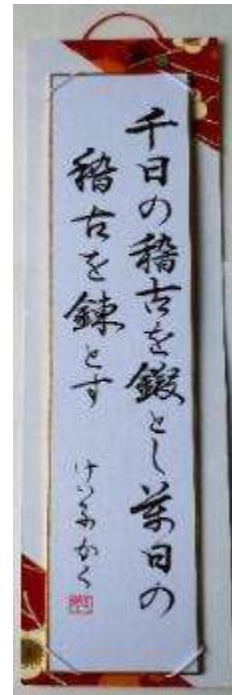 千日の稽古を鍛とし萬日の
稽古を錬とす
かく